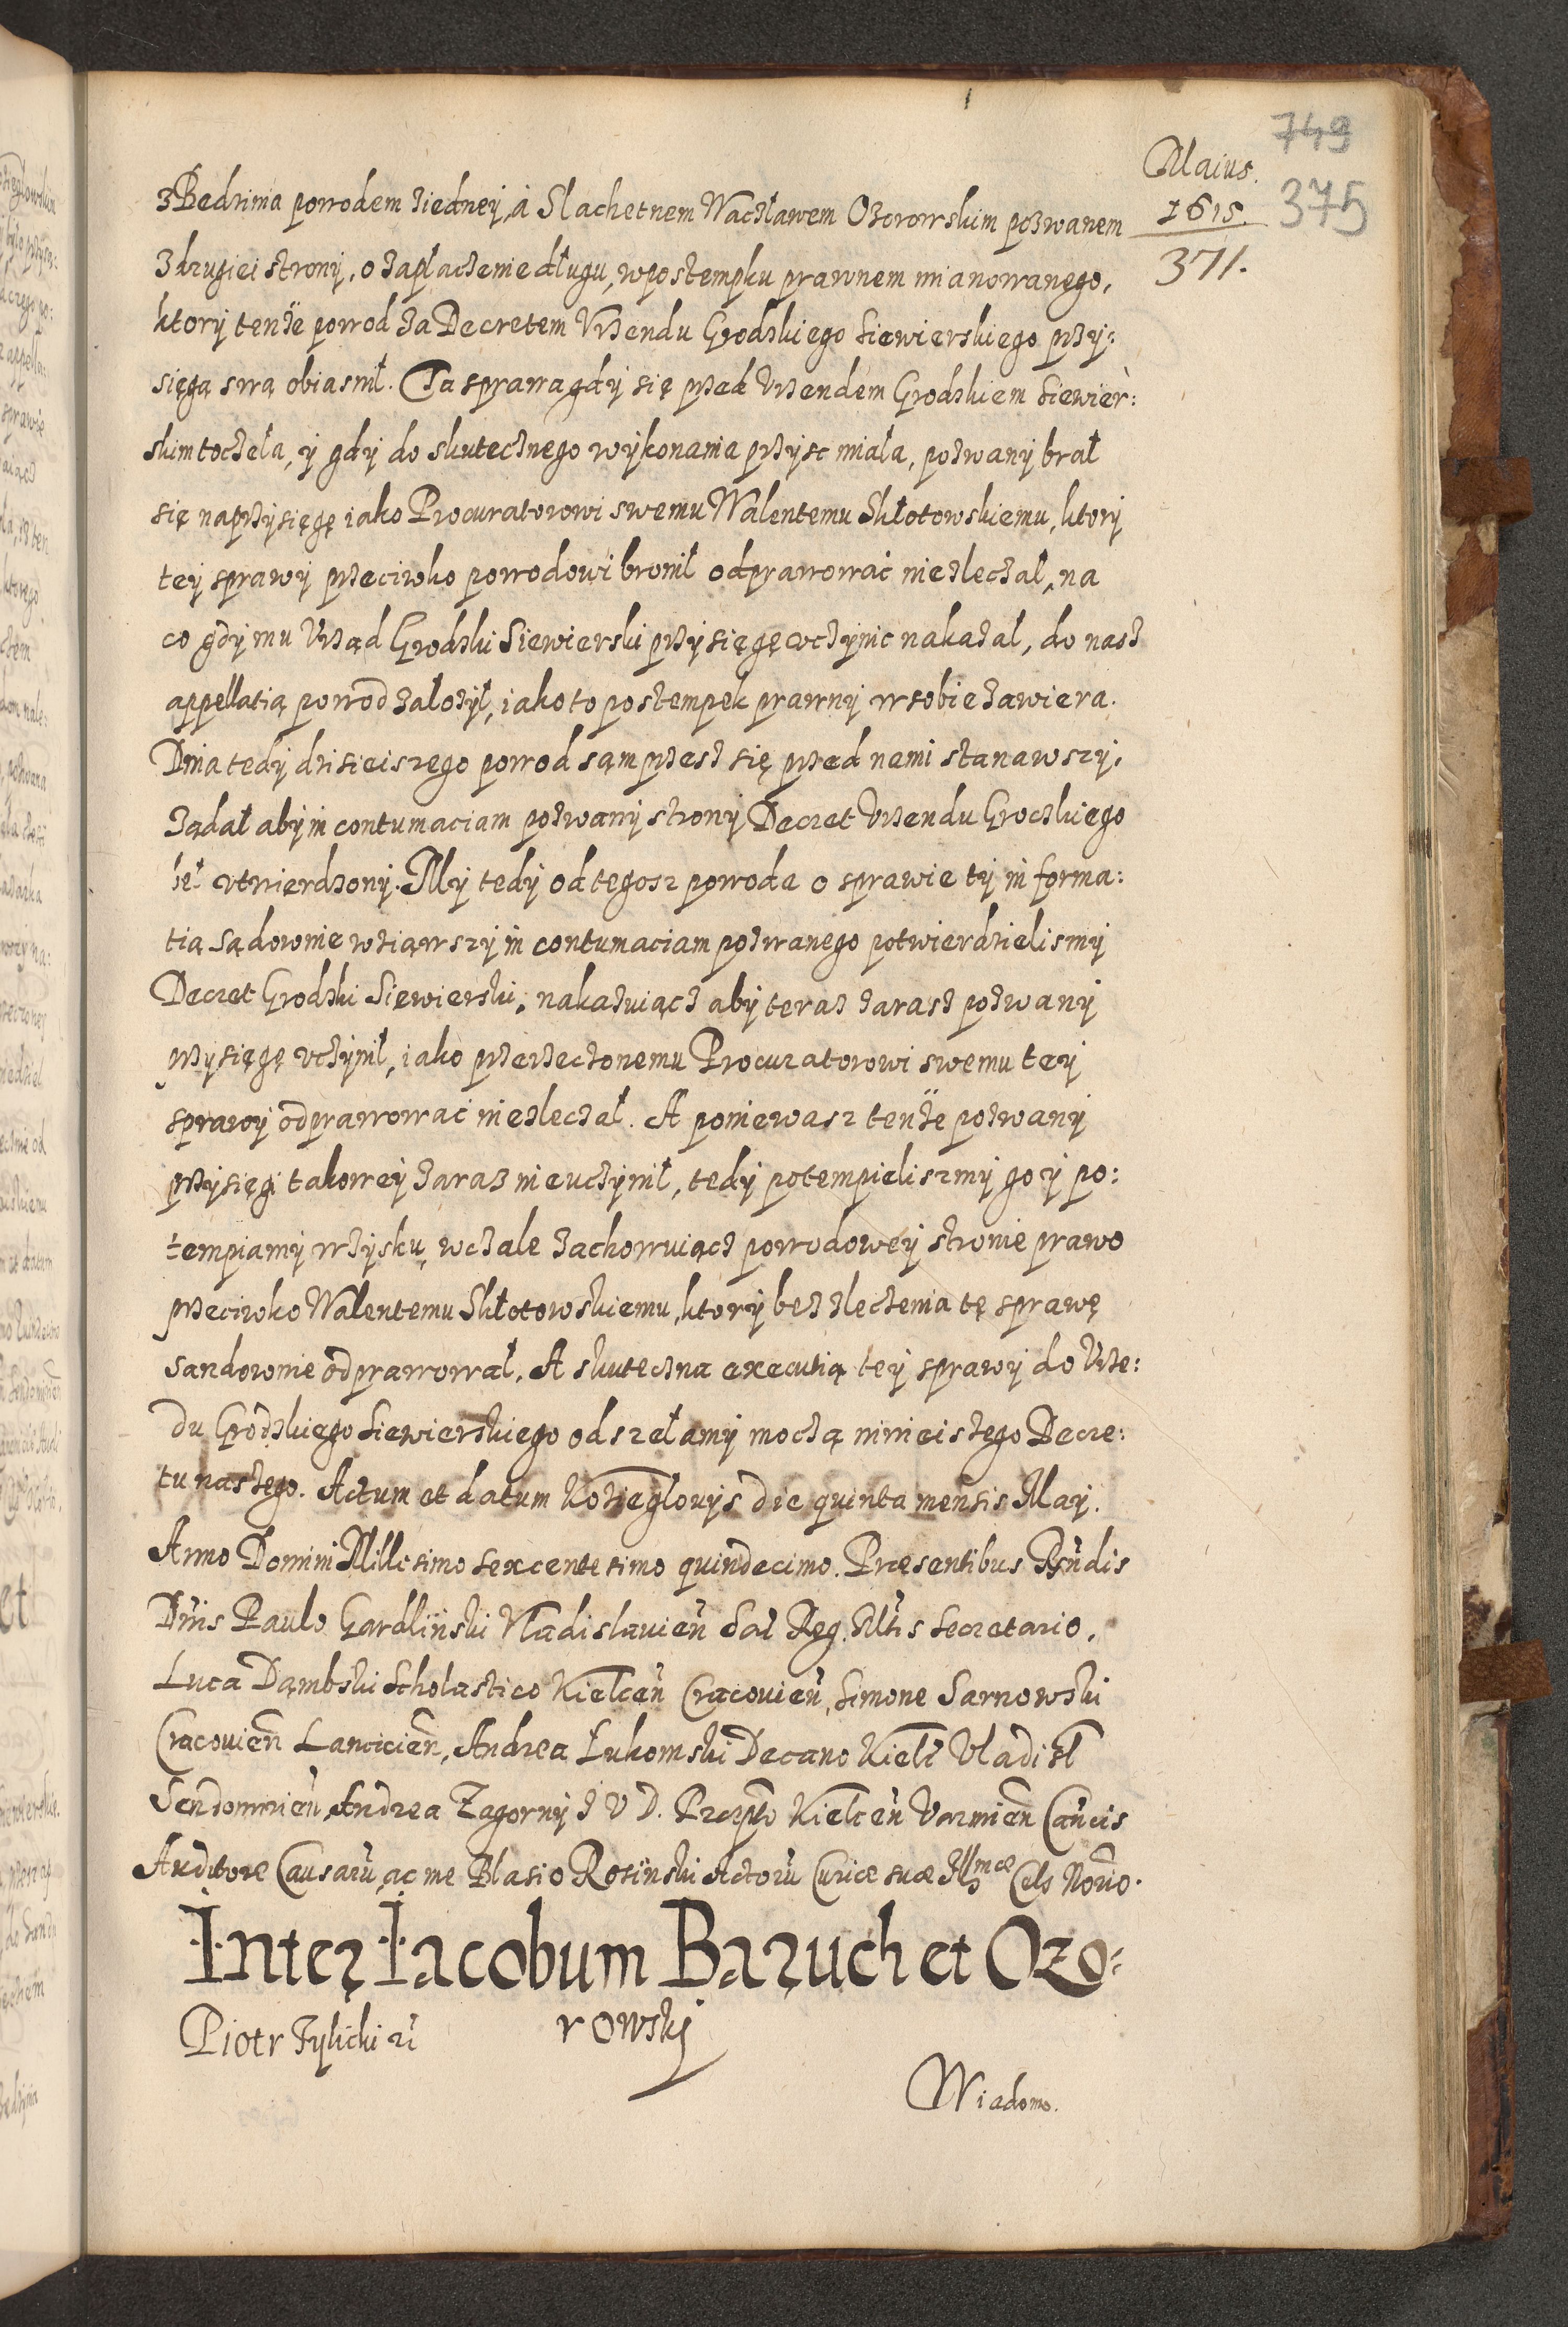 749
Maius.
1615.
375
371.
z Bedzina powodem ziedney, à Slachetnem Wacźławem Ozorowskim pozwanem
z drugiei strony, o zapłaczenie długu, w postempku prawnem mianowanego,
ktory tenże powod za Decretem Vrzendu Grodzkiego Siewierskiego przy:
sięgą swą obiasnił. Ta sprawa gdy się przed Vrzendem Grodzkiem Siewier:
skim toczeła, y gdy do skutecznego wykonania przysc miała, pozwany brał
się na przysięgę iako Procuratorowi swemu Walentemu Skłotowskiemu, ktory
tey sprawy przeciwko powodowi bronił odprawować nie zleczał, na
co gdy mu Vrząd Grodzki Siewierski przysięgę vczynic nakazał, do nasz
appellatią powod załozył, iako to postempek prawny w sobie zawiera.
Dnia tedy dzisieiszego powod sąm przesz się przed nami stanawszy,
ządał aby in contumaciam pozwany strony Decret Vrzendu Grockiego
beł vtwierdzony. My tedy od tegosz powoda o sprawie ty informa:
tią sądownie wziąwszy in contumaciam pozwanego potwierdzielismy
Decret Grodzki Siewierski, nakazuiącz aby teraz zarasz pozwany
przysięgę vczynił, iako przerzeczonemu Procuratorowi swemu tey
sprawy odprawować nie zleczał. A poniewasz tenże pozwany
przysięgi takowey zaraz nie uczynił, tedy potempieliszmy go y po:
tempiamy w zysku, wczale zachowuiącz powodowey stronie prawo
przeciwko Walentemu Skłotowskiemu, ktory bez zleczenia tę sprawę
sandownie odprawował. A skuteczna executią tey sprawy do Vrze:
du Grodzkiego Siewierskiego odszełamy moczą ninieiszego Decre:
tu naszego. Actum et datum Kozieglovijs die quinta mensis Maij.
Anno Domini Millesimo sexcentesimo quindecimo. Præsentibus Rndis
Dnis Paulo Gardlinski Vladislavien Sac Reg. Mtis Secretario,
Luca Dąmbski Scholastico Kielcen Cracovien, Simone Sarnowski
Cracovien Lancicien, Andrea Łukomski Decano Kielc Vladisl
Sendomirien, Andrea Zagorny I V D. Præpto Kielcen Varmien Cancis
Auditore Causaru, ac me Blasio Rosinski Actoru Curiæ suæ Illmæ Cels Norio.
Inter Iacobum Baruch et Ozo:
rowskj
Piotr Tylicki
Wiadomo.